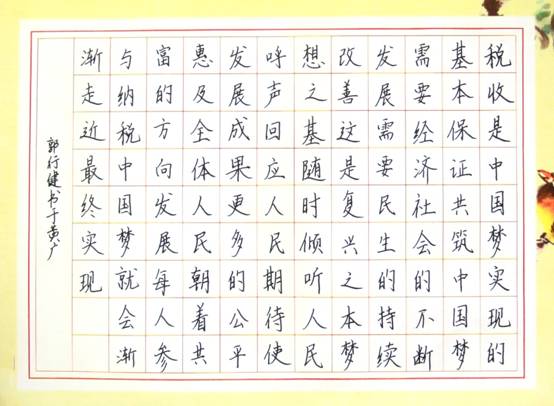 税收是中国梦实现的
基本保证共筑中国梦
需要经济社会的不断
发展需要民生的持续
改善这是复兴之本梦
想之基随时倾听人民
呼声回应人民期待使
发展成果更多的公平
惠及全体人民朝着共
富的方向发展每人参
与纳税中国梦就会渐
渐走近最终实现
郭行健书于黄广